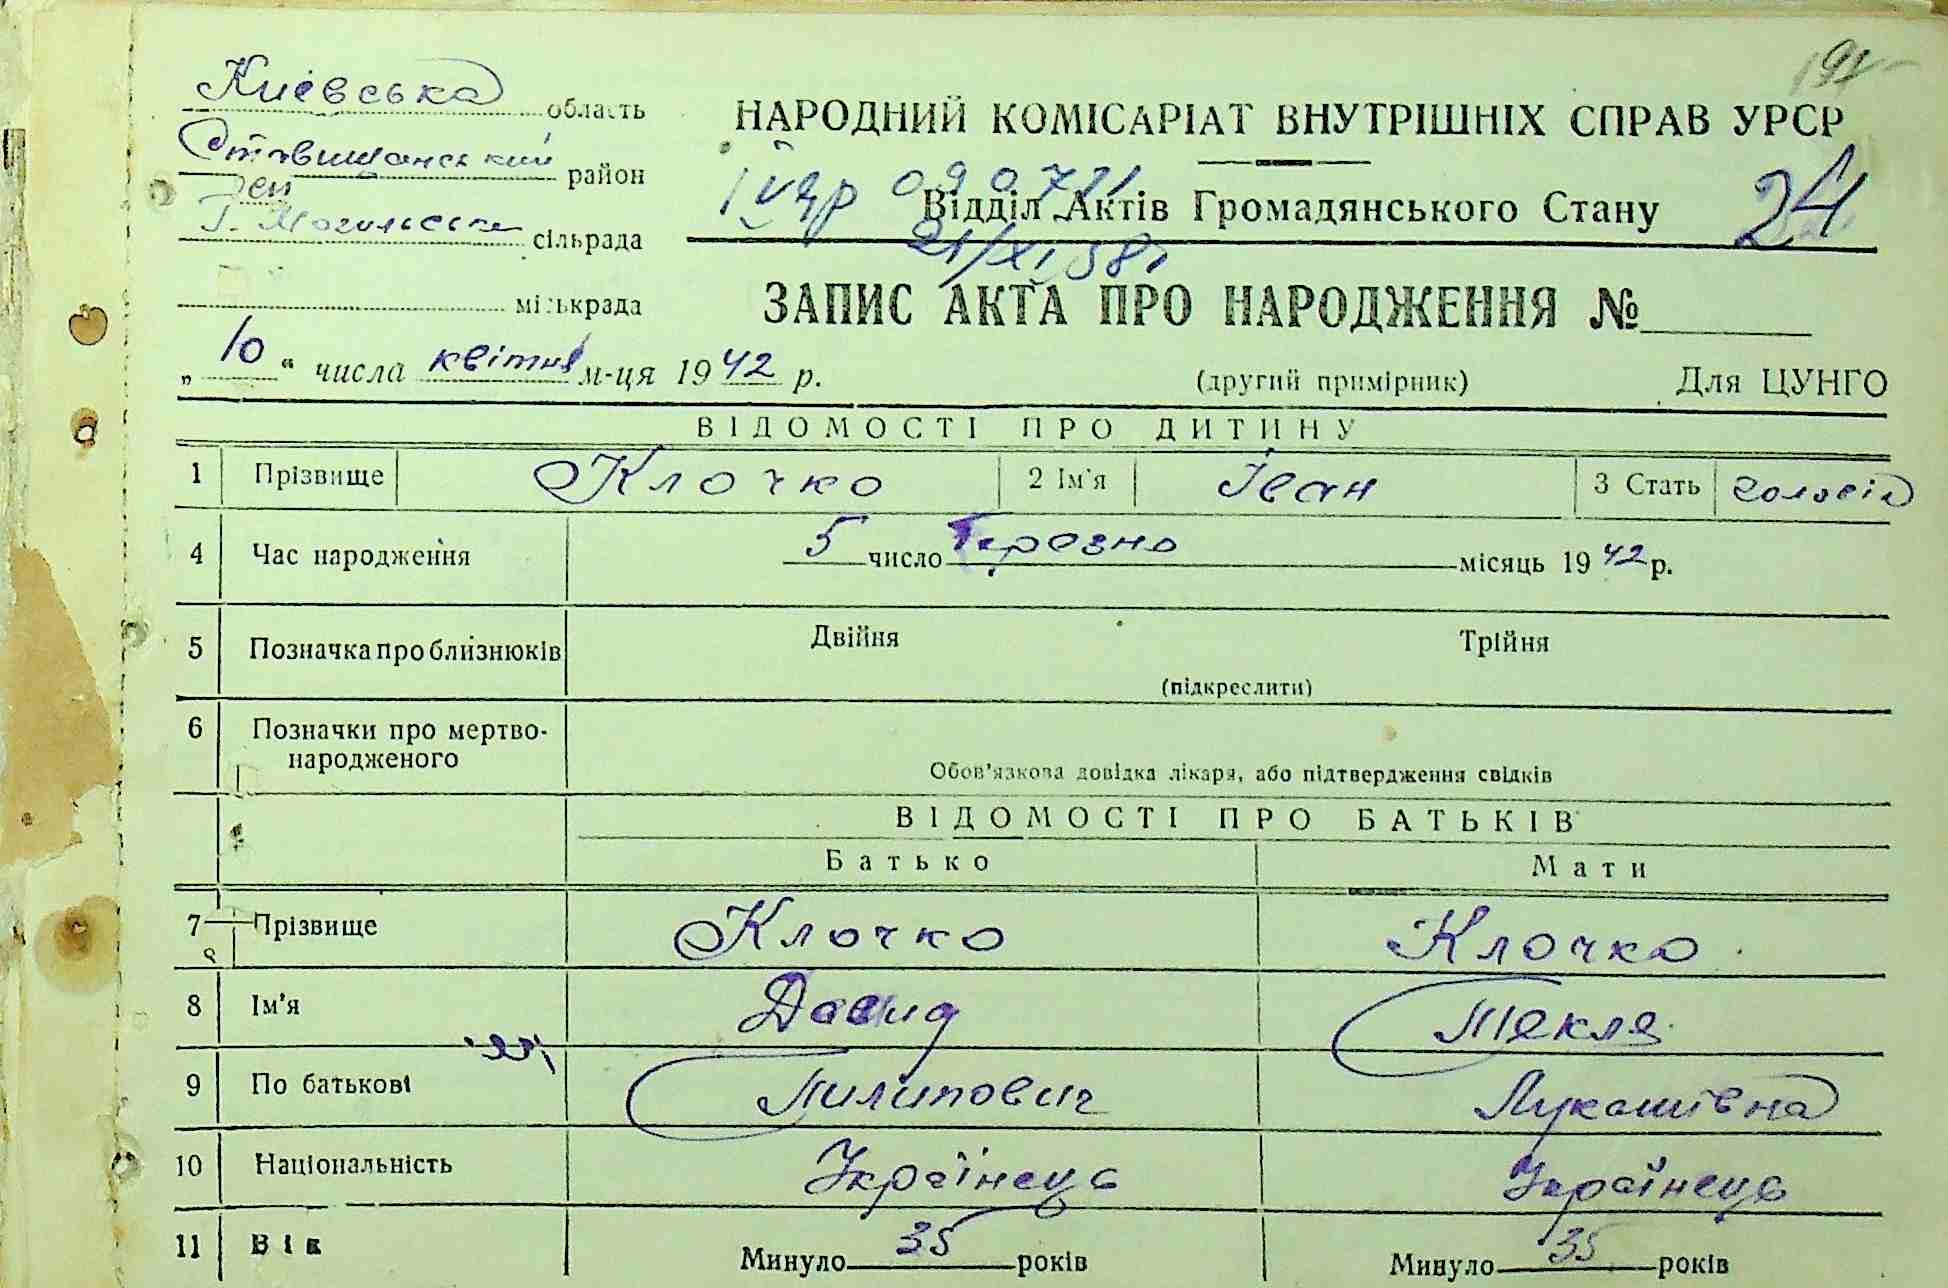 Київська область
Ставищанський район
Г. Могильська сільрада
міськрада
НАРОДНИЙ КОМІСАРІАТ ВНУТРІШНІХ СПРАВ УРСР
090721
Відділ Актів Громадянського Стану
24
21/XI 58г
ЗАПИС АКТА ПРО НАРОДЖЕННЯ №
„ 10 “ числа квітня м-ця 1942 р.
(другий примірник) Для ЦУНГО
ВІДОМОСТІ ПРО ДИТИНУ
1 Прізвище Клочко 2 Ім'я Іван 3 Стать
4 Час народження 5 число Березня місяць 1942 р.
5 Позначка про близнюків Двійня Трійня
(підкреслити)
6 Позначки про мертво-
народженого
Обов'язкова довідка лікаря, або підтвердження свідків
ВІДОМОСТІ ПРО БАТЬКІВ
Батько Мати
7 Прізвище Клочко Клочко
8 Ім'я Давид Текля
9 По батькові Пилипович Лукашівна
10 Національність Українець Українець
11 Вік Минуло 35 років Минуло 35 років